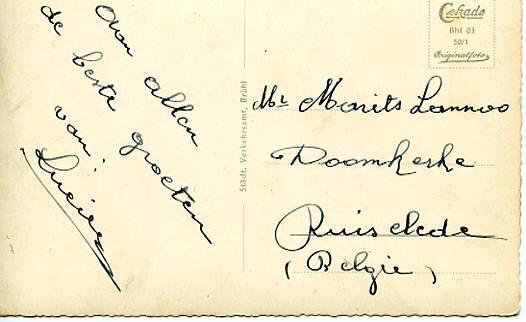 Aan allen
de beste groeten
van:
Lucien
Städt. Verkehrsamt, Brühl
Cekade
Bhl 03
50/1
Originalfoto
Mr Marits Lannoo
Doomkerke
Ruiselede
(Belgie)